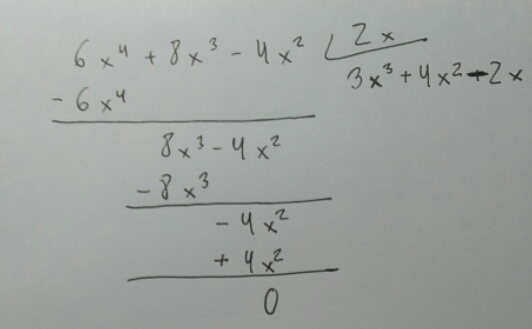 6x⁴ + 8x³ - 4x² 2x
- 6x⁴ 3x³ + 4x² - 2x
8x³ - 4x²
- 8x³
- 4x²
+ 4x²
0